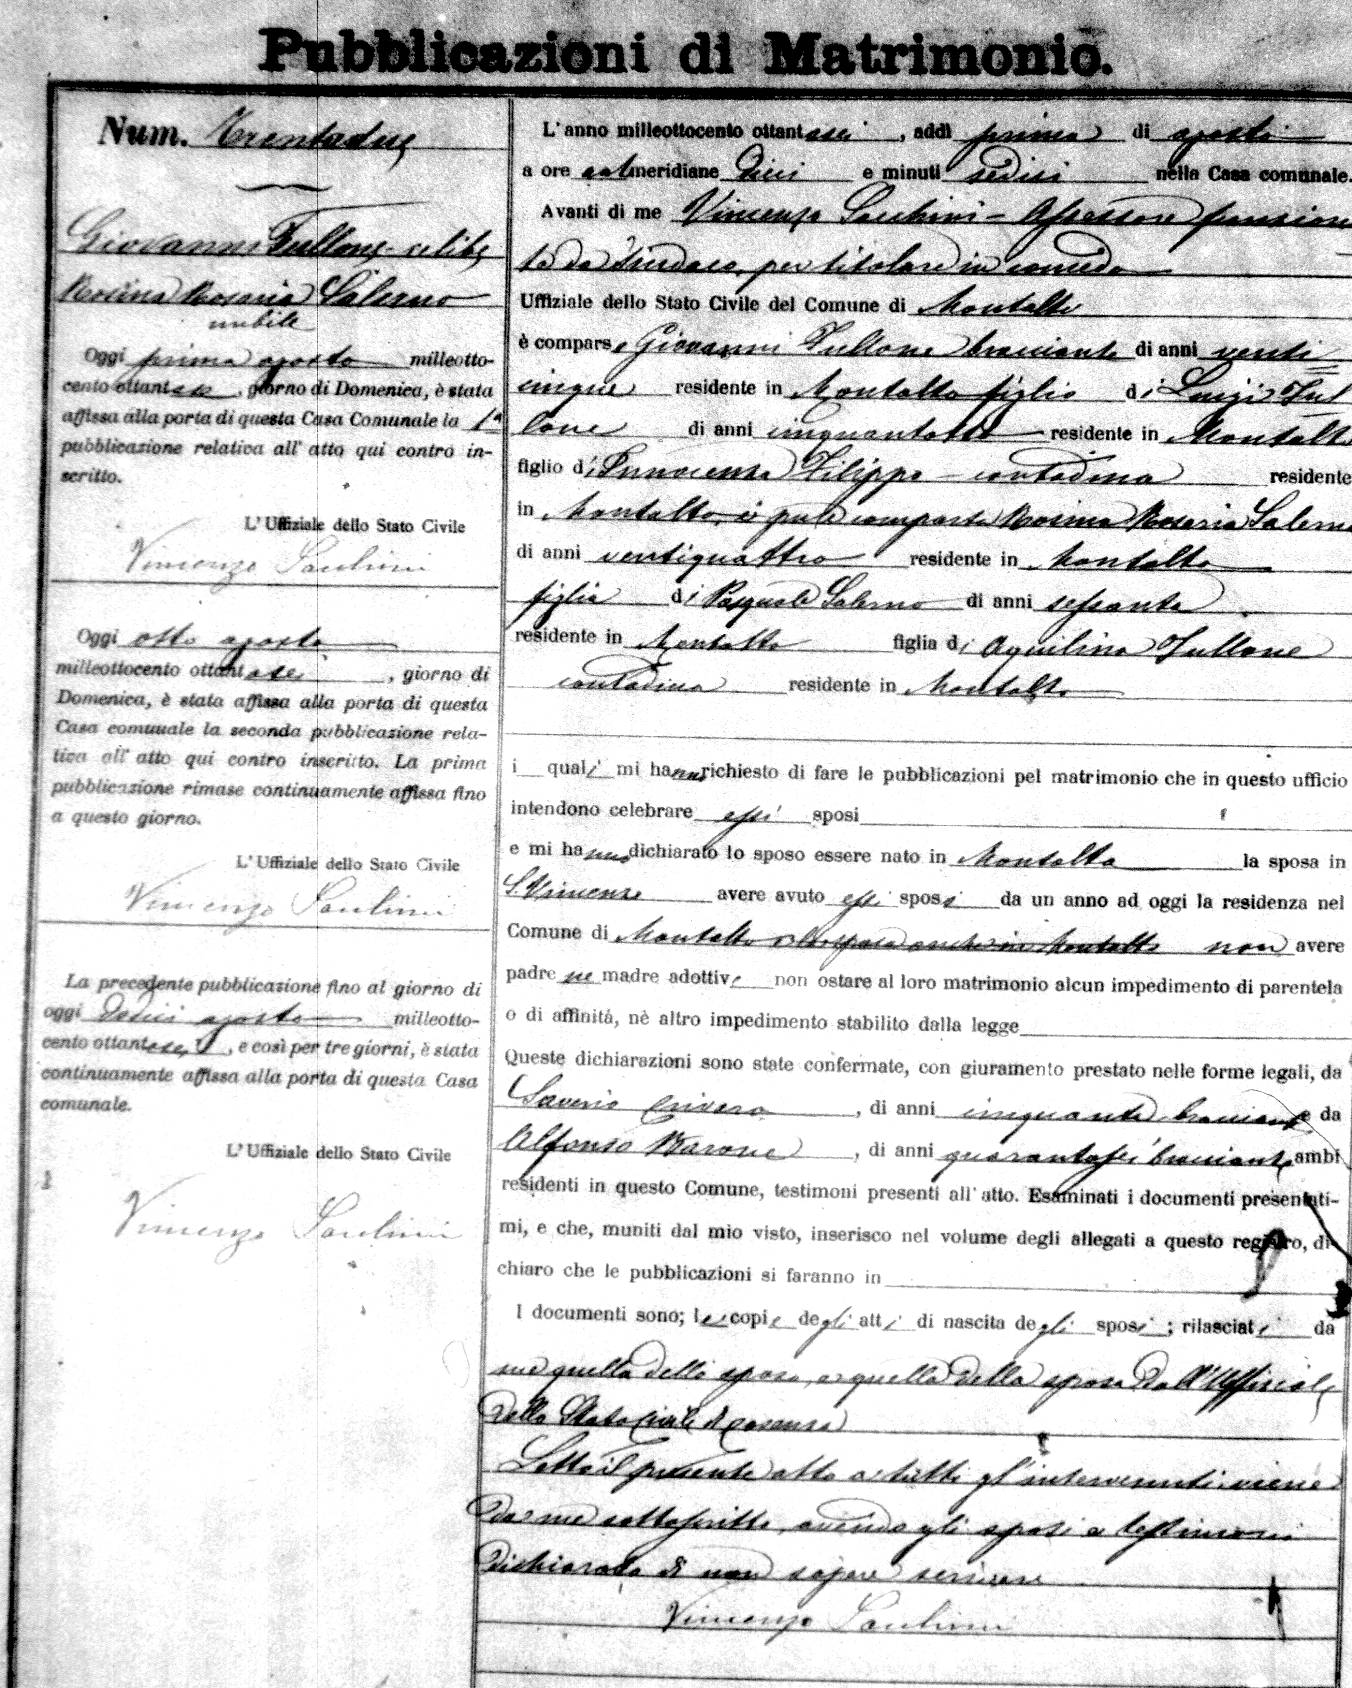 Pubblicazioni di Matrimonio.
Num. Trentadue
Giovanni Fullone celibe
Rosina Rosaria Salerno
nubile
Oggi primo agosto milleotto-
cento ottantasei, giorno di Domenica, è stata
affissa alla porta di questa Casa Comunale la 1a
pubblicazione relativa all' atto qui contro in-
scritto.
L' Uffiziale dello Stato Civile
Vincenzo
Oggi otto agosto
milleottocento ottantasei, giorno di
Domenica, è stata affissa alla porta di questa
Casa comunale la seconda pubblicazione rela-
tiva all' atto qui contro inscritto. La prima
pubblicazione rimase continuamente affissa fino
a questo giorno.
L' Uffiziale dello Stato Civile
Vincenzo
La precedente pubblicazione fino al giorno di
oggi agosto milleotto-
cento ottantasei, e così per tre giorni, è stata
continuamente affissa alla porta di questa Casa
comunale.
L' Uffiziale dello Stato Civile
Vincenzo
L' anno milleottocento ottantasei, addì primo di agosto
a ore antmeridiane dieci e minuti sedici nella Casa comunale.
Avanti di me Vincenzo Assessore funzion
te da Sindaco, per titolare in congedo
Uffiziale dello Stato Civile del Comune di Montalto
è comparso Giovanni Fullone bracciante di anni venti
cinque residente in Montalto figlio di Luigi Ful
lone di anni residente in Montalto
figlio di Innocenza Filippo contadina residente
in Montalto, è pure comparsa Rosina Rosaria Salerno
di anni ventiquattro residente in Montalto
figlia di Pasquale Salerno di anni sessanta
residente in Montalto figlia di Aquilina Fullone
contadina residente in Montalto
i quali mi hanno richiesto di fare le pubblicazioni pel matrimonio che in questo ufficio
intendono celebrare essi sposi
e mi hanno dichiarato lo sposo essere nato in Montalto la sposa in
S. Vincenzo avere avuto essi sposi da un anno ad oggi la residenza nel
Comune di Montalto e la sposa anche in Montalto non avere
padre ne madre adottivi non ostare al loro matrimonio alcun impedimento di parentela
o di affinità, nè altro impedimento stabilito dalla legge
Queste dichiarazioni sono state confermate, con giuramento prestato nelle forme legali, da
Saverio, di anni cinquanta bracciante e da
Alfonso Barone, di anni quarantasei bracciante ambi
residenti in questo Comune, testimoni presenti all' atto. Esaminati i documenti presentati-
mi, e che, muniti dal mio visto, inserisco nel volume degli allegati a questo registro, di-
chiaro che le pubblicazioni si faranno in
I documenti sono; le copie degli atti di nascita degli sposi; rilasciati da
me quella dello sposo, e quella della sposa dall' Uffiziale
dello Stato Civile di Cosenza
Letto il presente atto a tutti gl' intervenuti viene
da me sottoscritto, avendo gli sposi e testimoni
dichiarato di non sapere scrivere
Vincenzo